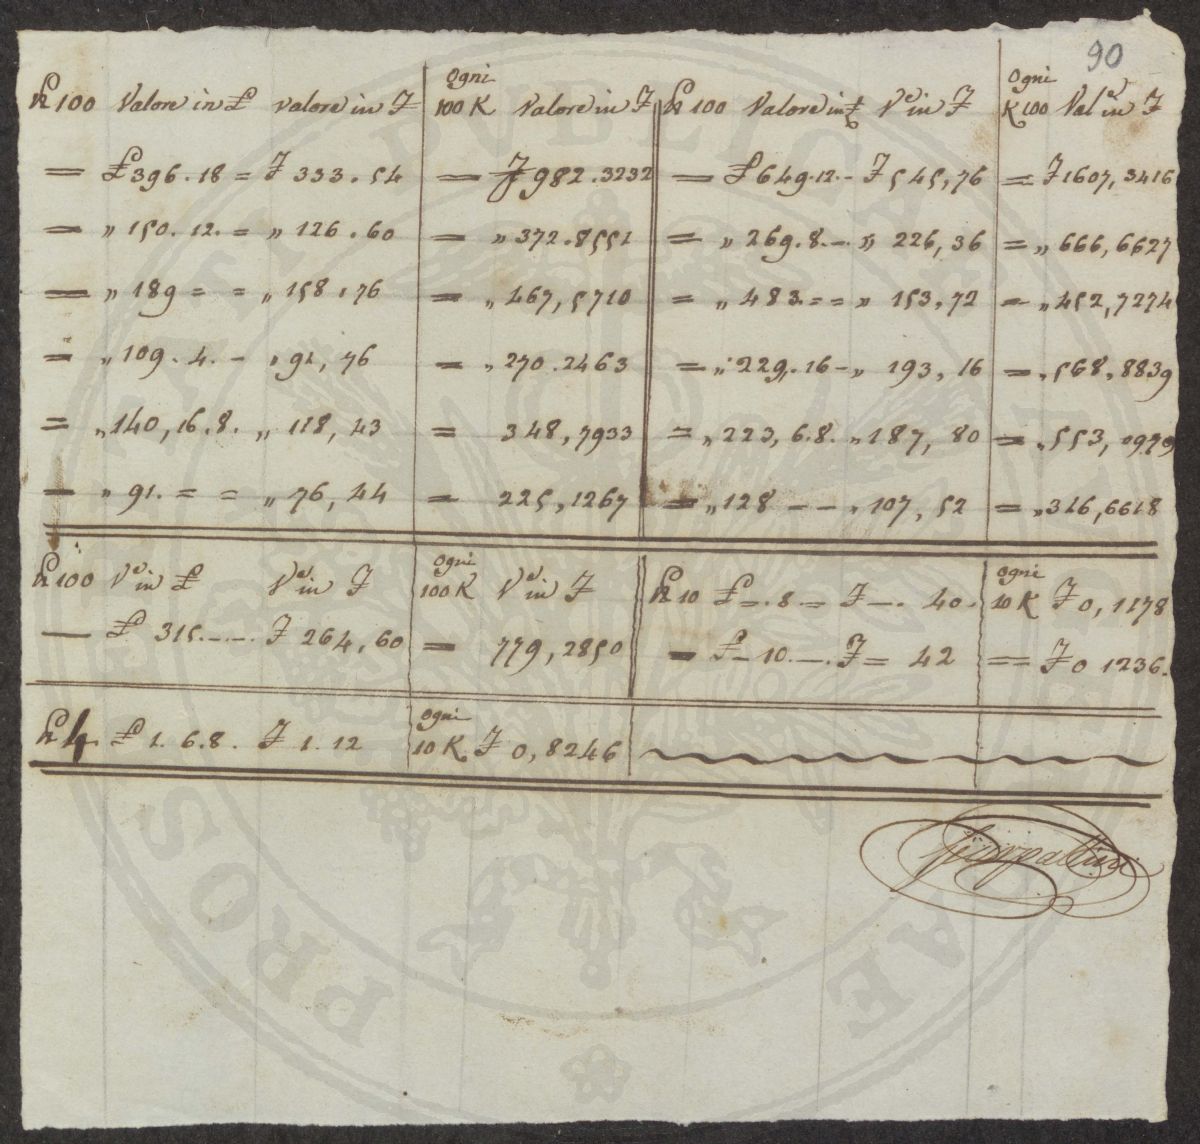 90
ogni ogni
℔ 100 Valore in £ valore in F 100 K Valore in F ℔ 100 Valore in £ Vᵉ in F K 100 Valᵉ in F
= £ 396.18 = F 333.54 = F 982.3232 = £ 649.12.- F 545,76 = F 1607,3416
= „ 150.12. = „ 126.60 = „ 372.8551 = „ 269.8.- „ 226,36 = „ 666,6627
= „ 189 = = „ 158,76 = „ 467,5710 = „ 483. = = „ 153,72 = „ 452,7274
= „ 109.4.- „ 91,76 = „ 270.2463 = „ 229.16 - „ 193,16 = „ 568,8839
= „ 140,16.8. „ 118,43 = 348,7933 = „ 223,6.8. „ 187,80 = „ 553,0979
= „ 91. = = „ 76,44 = 225,1267 = „ 128 - - „ 107,52 = „ 316,6618
ogni ogni
℔ 100 Vᵉ in £ Vᵉ in F 100 K Vᵉ in F ℔ 10 £ -.8.= F -. 40. 10 K F 0,1178
— £ 315.-.-. F 264,60 = 779,2850 = £ - 10.-. F = 42 == F 0 1236.
ogni
℔ 4 £ 1.6.8. F 1.12 10 K F 0,8246
PUBLICAE
PROS
AE